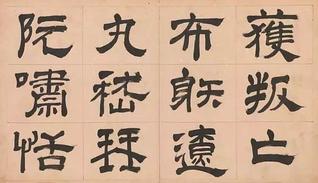 獲叛亡
布射遼
丸嵇琴
阮嘯恬